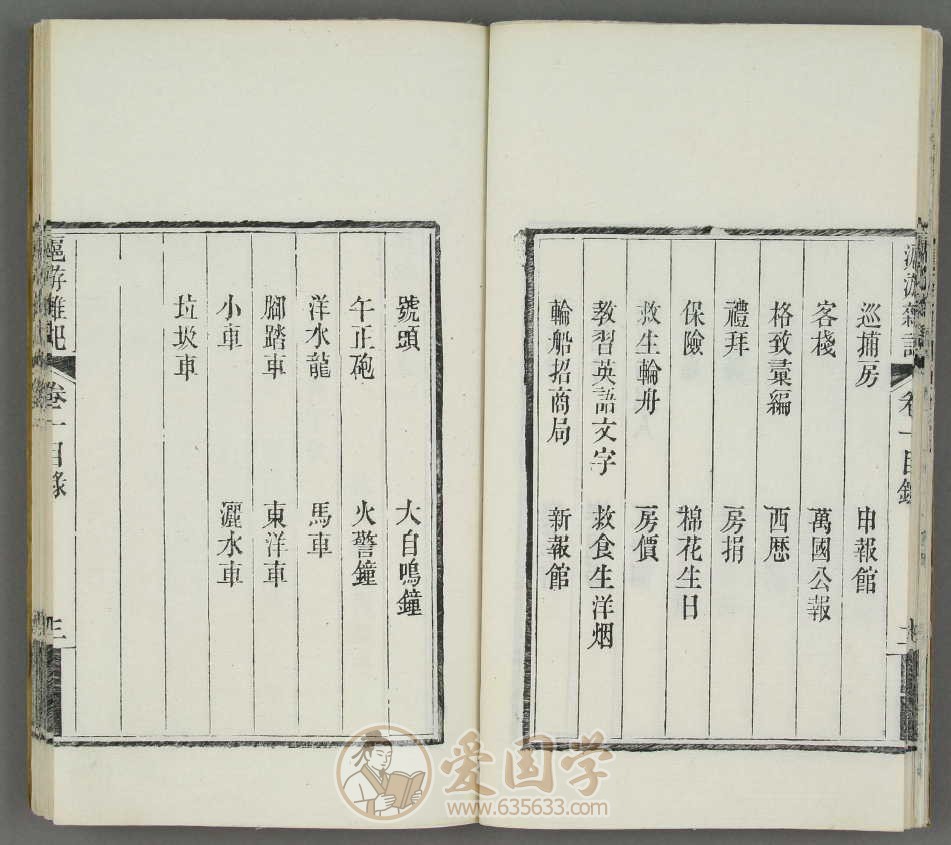 巡捕房 申報館
客棧 萬國公報
格致彙編 西歷
禮拜 房捐
保險 棉花生日
救生輪舟 房價
教習英語文字 救食生洋烟
輪船招商局 新報館
卷一目錄
號頭 大自鳴鐘
午正砲 火警鐘
洋水龍 馬車
腳踏車 東洋車
小車 灑水車
垃圾車
卷一目錄
三
爱国学
www.635633.com